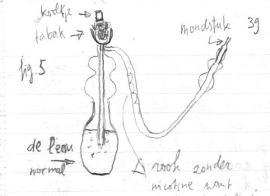 kooltje
tabak
mondstuk
39
fig. 5
de l'eau
normal
rook zonder
nicotine